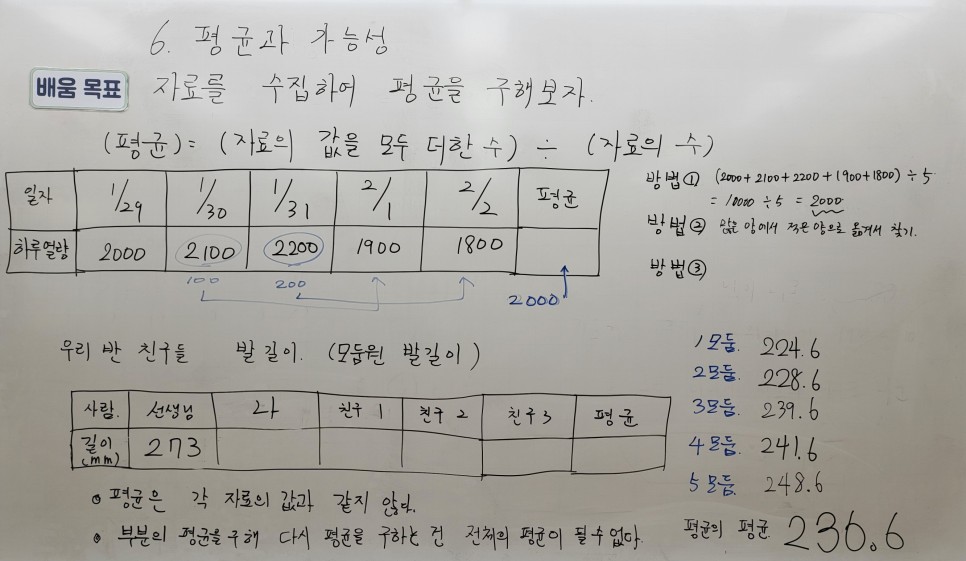 6. 평균과 가능성
배움 목표 자료를 수집하여 평균을 구해보자.
(평균) = (자료의 값을 모두 더한 수) ÷ (자료의 수)
일자 1/29 1/30 1/31 2/1 2/2 평균
하루열량 2000 2100 2200 1900 1800
100 200 2000
방법① (2000+2100+2200+1900+1800)÷5
= 10000÷5 = 2000
방법② 많은 양에서 적은 양으로 옮겨서 찾기.
방법③
우리 반 친구들 발 길이. (모둠원 발길이)
사람. 선생님 나 친구 1 친구 2 친구 3 평균
길이(mm) 273
1모둠. 224.6
2모둠. 228.6
3모둠. 239.6
4모둠. 241.6
5모둠. 248.6
• 평균은 각 자료의 값과 같지 않다.
• 부분의 평균을 구해 다시 평균을 구하는 건 전체의 평균이 될 수 없다.
평균의 평균 236.6